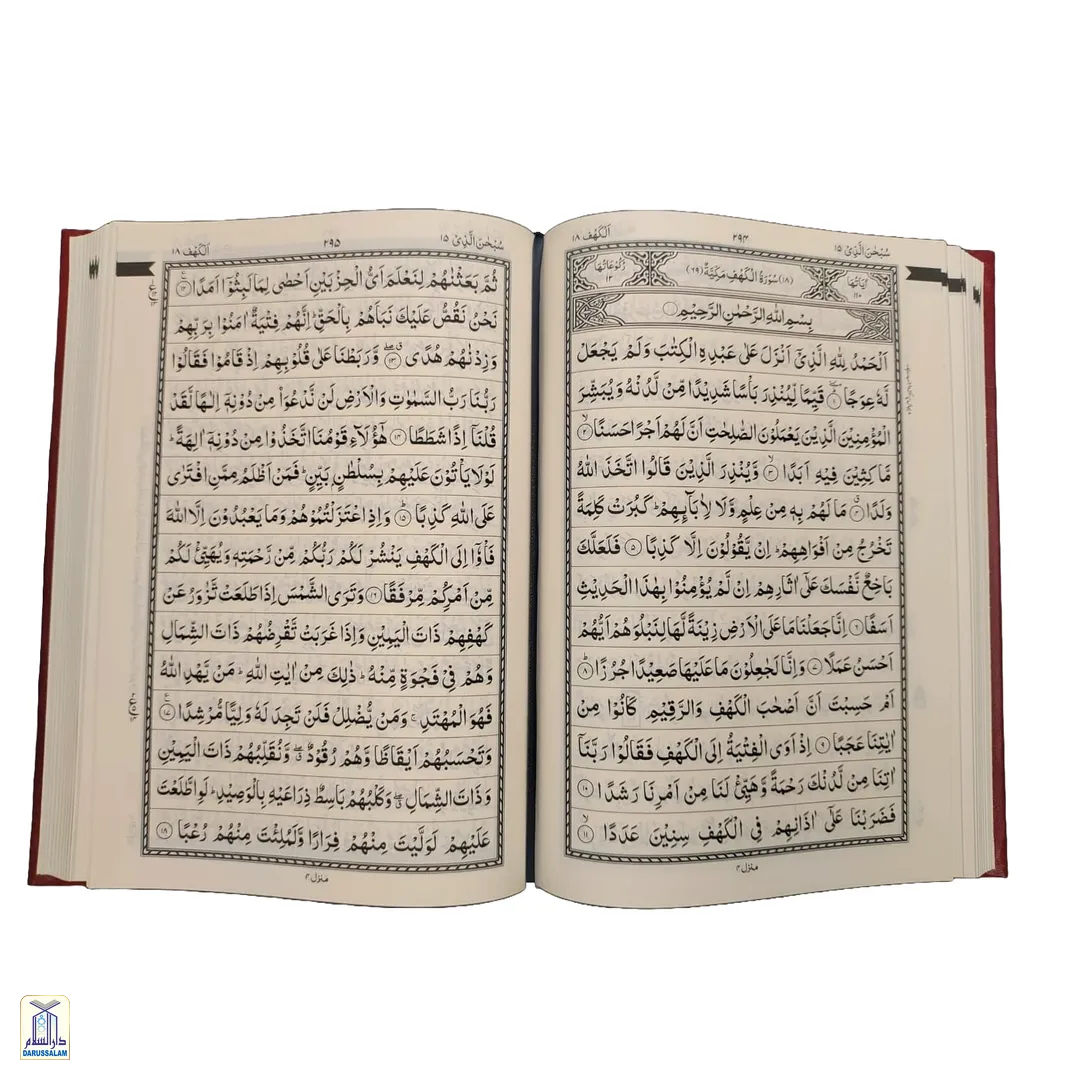 سُبْحٰنَ الَّذِيْۤ ١٥
٢٩٤
اَلْكَهْف ١٨
اٰيَاتُهَا ١١٠
(١٨) سُوْرَةُ الْكَهْفِ مَكِّيَّةٌ (٦٩)
رُكُوْعَاتُهَا ١٢
بِسْمِ اللّٰهِ الرَّحْمٰنِ الرَّحِيْمِ
اَلْحَمْدُ لِلّٰهِ الَّذِيْۤ اَنْزَلَ عَلٰى عَبْدِهِ الْكِتٰبَ وَلَمْ يَجْعَلْ
لَّهٗ عِوَجًا ۜ ١ قَيِّمًا لِّيُنْذِرَ بَاْسًا شَدِيْدًا مِّنْ لَّدُنْهُ وَيُبَشِّرَ
الْمُؤْمِنِيْنَ الَّذِيْنَ يَعْمَلُوْنَ الصّٰلِحٰتِ اَنَّ لَهُمْ اَجْرًا حَسَنًا ۙ ٢
مَّاكِثِيْنَ فِيْهِ اَبَدًا ۙ ٣ وَّيُنْذِرَ الَّذِيْنَ قَالُوا اتَّخَذَ اللّٰهُ
وَلَدًا ۗ ٤ مَا لَهُمْ بِهٖ مِنْ عِلْمٍ وَّلَا لِاٰبَآىِٕهِمْ ؕ كَبُرَتْ كَلِمَةً
تَخْرُجُ مِنْ اَفْوَاهِهِمْ ؕ اِنْ يَّقُوْلُوْنَ اِلَّا كَذِبًا ٥ فَلَعَلَّكَ
بَاخِعٌ نَّفْسَكَ عَلٰۤى اٰثَارِهِمْ اِنْ لَّمْ يُؤْمِنُوْا بِهٰذَا الْحَدِيْثِ
اَسَفًا ٦ اِنَّا جَعَلْنَا مَا عَلَى الْاَرْضِ زِيْنَةً لَّهَا لِنَبْلُوَهُمْ اَيُّهُمْ
اَحْسَنُ عَمَلًا ٧ وَاِنَّا لَجٰعِلُوْنَ مَا عَلَيْهَا صَعِيْدًا جُرُزًا ؕ ٨
اَمْ حَسِبْتَ اَنَّ اَصْحٰبَ الْكَهْفِ وَالرَّقِيْمِ كَانُوْا مِنْ
اٰيٰتِنَا عَجَبًا ٩ اِذْ اَوَى الْفِتْيَةُ اِلَى الْكَهْفِ فَقَالُوْا رَبَّنَاۤ
اٰتِنَا مِنْ لَّدُنْكَ رَحْمَةً وَّهَيِّئْ لَنَا مِنْ اَمْرِنَا رَشَدًا ١٠
فَضَرَبْنَا عَلٰۤى اٰذَانِهِمْ فِى الْكَهْفِ سِنِيْنَ عَدَدًا ۙ ١١
منزل ٤
سُبْحٰنَ الَّذِيْۤ ١٥
٢٩٥
اَلْكَهْف ١٨
ثُمَّ بَعَثْنٰهُمْ لِنَعْلَمَ اَىُّ الْحِزْبَيْنِ اَحْصٰى لِمَا لَبِثُوْۤا اَمَدًا ١٢
نَحْنُ نَقُصُّ عَلَيْكَ نَبَاَهُمْ بِالْحَقِّ ؕ اِنَّهُمْ فِتْيَةٌ اٰمَنُوْا بِرَبِّهِمْ
وَزِدْنٰهُمْ هُدًى ۖ ١٣ وَّرَبَطْنَا عَلٰى قُلُوْبِهِمْ اِذْ قَامُوْا فَقَالُوْا
رَبُّنَا رَبُّ السَّمٰوٰتِ وَالْاَرْضِ لَنْ نَّدْعُوَا۟ مِنْ دُوْنِهٖۤ اِلٰهًا لَّقَدْ
قُلْنَاۤ اِذًا شَطَطًا ١٤ هٰۤؤُلَآءِ قَوْمُنَا اتَّخَذُوْا مِنْ دُوْنِهٖۤ اٰلِهَةً ؕ
لَوْلَا يَاْتُوْنَ عَلَيْهِمْ بِسُلْطٰنٍۭ بَيِّنٍ ؕ فَمَنْ اَظْلَمُ مِمَّنِ افْتَرٰى
عَلَى اللّٰهِ كَذِبًا ؕ ١٥ وَاِذِ اعْتَزَلْتُمُوْهُمْ وَمَا يَعْبُدُوْنَ اِلَّا اللّٰهَ
فَاْوٗۤا اِلَى الْكَهْفِ يَنْشُرْ لَكُمْ رَبُّكُمْ مِّنْ رَّحْمَتِهٖ وَيُهَيِّئْ لَكُمْ
مِّنْ اَمْرِكُمْ مِّرْفَقًا ١٦ وَتَرَى الشَّمْسَ اِذَا طَلَعَتْ تَّزٰوَرُ عَنْ
كَهْفِهِمْ ذَاتَ الْيَمِيْنِ وَاِذَا غَرَبَتْ تَّقْرِضُهُمْ ذَاتَ الشِّمَالِ
وَهُمْ فِيْ فَجْوَةٍ مِّنْهُ ؕ ذٰلِكَ مِنْ اٰيٰتِ اللّٰهِ ؕ مَنْ يَّهْدِ اللّٰهُ
فَهُوَ الْمُهْتَدِ ۚ وَمَنْ يُّضْلِلْ فَلَنْ تَجِدَ لَهٗ وَلِيًّا مُّرْشِدًا ١٧
وَتَحْسَبُهُمْ اَيْقَاظًا وَّهُمْ رُقُوْدٌ ۖ وَّنُقَلِّبُهُمْ ذَاتَ الْيَمِيْنِ
وَذَاتَ الشِّمَالِ ۖ وَكَلْبُهُمْ بَاسِطٌ ذِرَاعَيْهِ بِالْوَصِيْدِ ؕ لَوِ اطَّلَعْتَ
عَلَيْهِمْ لَوَلَّيْتَ مِنْهُمْ فِرَارًا وَّلَمُلِئْتَ مِنْهُمْ رُعْبًا ١٨
منزل ٤
دار السلام
DARUSSALAM